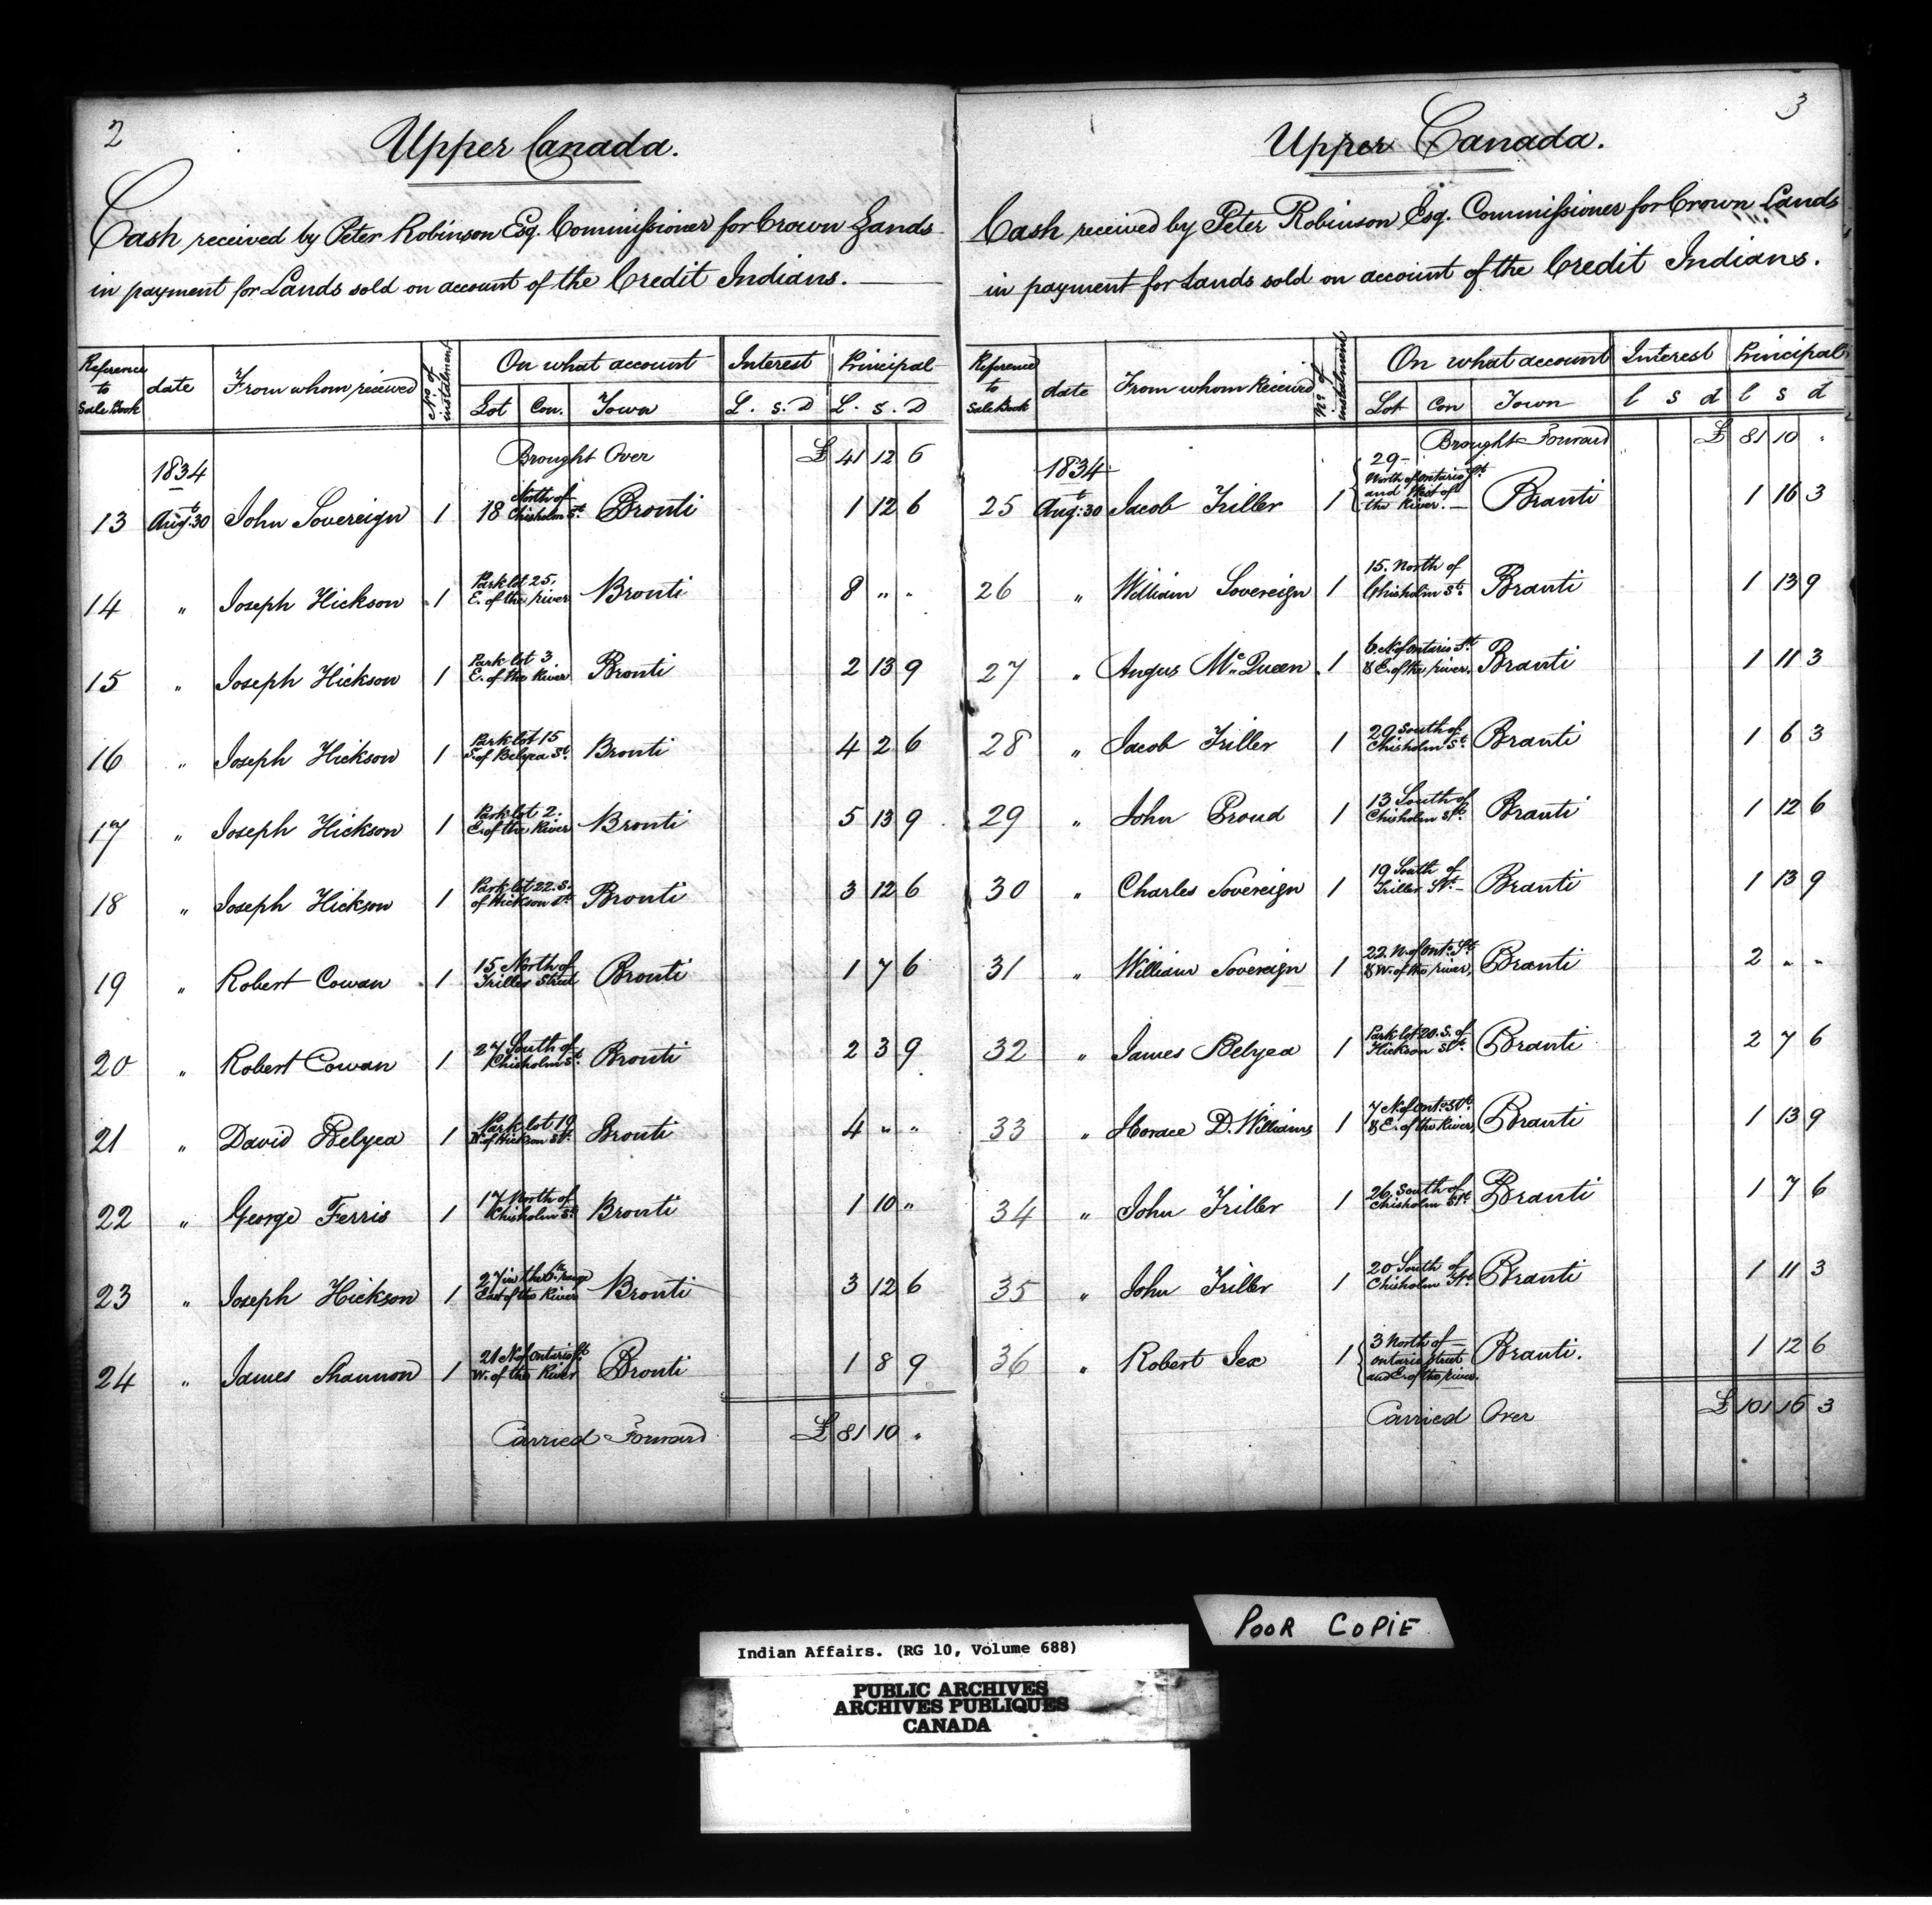 2
Upper Canada.
Cash received by Peter Robinson Esq. Commissioner for Crown Lands
in payment for Lands sold on account of the Credit Indians.
Reference to Sale Book | date | From whom received | No. of instalment | On what account | Interest | Principal
Lot | Con. | Town | L. s. D | L. s. D
Brought Over £ 41 12 6
1834
13 Augt. 30 John Sovereign 1 18 North of Chisholm St. Bronti 1 12 6
14 " Joseph Hickson 1 Park lot 25, E. of the river Bronti 8 " "
15 " Joseph Hickson 1 Park lot 3 E. of the River Bronti 2 13 9
16 " Joseph Hickson 1 Park lot 15 S. of Belyea St. Bronti 4 2 6
17 " Joseph Hickson 1 Park lot 2. E. of the River Bronti 5 13 9
18 " Joseph Hickson 1 Park lot 22. S. of Hickson St. Bronti 3 12 6
19 " Robert Cowan 1 15 North of Triller Street Bronti 1 7 6
20 " Robert Cowan 1 27 South of Chisholm St. Bronti 2 3 9
21 " David Belyea 1 Park lot 19 N. of Hickson St. Bronti 4 " "
22 " George Ferris 1 17 North of Chisholm St. Bronti 1 10 "
23 " Joseph Hickson 1 27 in the range East of the River Bronti 3 12 6
24 " James Shannon 1 21 N. of Ontario St. W. of the River Bronti 1 8 9
Carried Forward £ 81 10 "
3
Upper Canada.
Cash received by Peter Robinson Esq. Commissioner for Crown Lands
in payment for Lands sold on account of the Credit Indians.
Reference to Sale Book | date | From whom Received | No. of instalment | On what account | Interest | Principal
Lot | Con | Town | l s d | l s d
Brought Forward £ 81 10 "
1834
25 Augt. 30 Jacob Triller 1 29 - North of Ontario St. and West of the River. Branti 1 16 3
26 " William Sovereign 1 15. North of Chisholm St. Branti 1 13 9
27 " Angus McQueen 1 6. N. of Ontario St. & E. of the river. Branti 1 11 3
28 " Jacob Triller 1 29 South of Chisholm St. Branti 1 6 3
29 " John Proud 1 13 South of Chisholm St. Branti 1 12 6
30 " Charles Sovereign 1 19 South of Triller St. Branti 1 13 9
31 " William Sovereign 1 22. N. of Onto. St. & W. of the river, Branti 2 " "
32 " James Belyea 1 Park lot 20. S. of Hickson St. Branti 2 7 6
33 " Horace D. Williams 1 7 N. of Onto. St. & E. of the River, Branti 1 13 9
34 " John Triller 1 26 South of Chisholm St. Branti 1 7 6
35 " John Triller 1 20 South of Chisholm St. Branti 1 11 3
36 " Robert 1 3 North of Ontario Street and E. of the river. Branti. 1 12 6
Carried Over £ 101 16 3
POOR COPIE
Indian Affairs. (RG 10, Volume 688)
PUBLIC ARCHIVES
ARCHIVES PUBLIQUES
CANADA